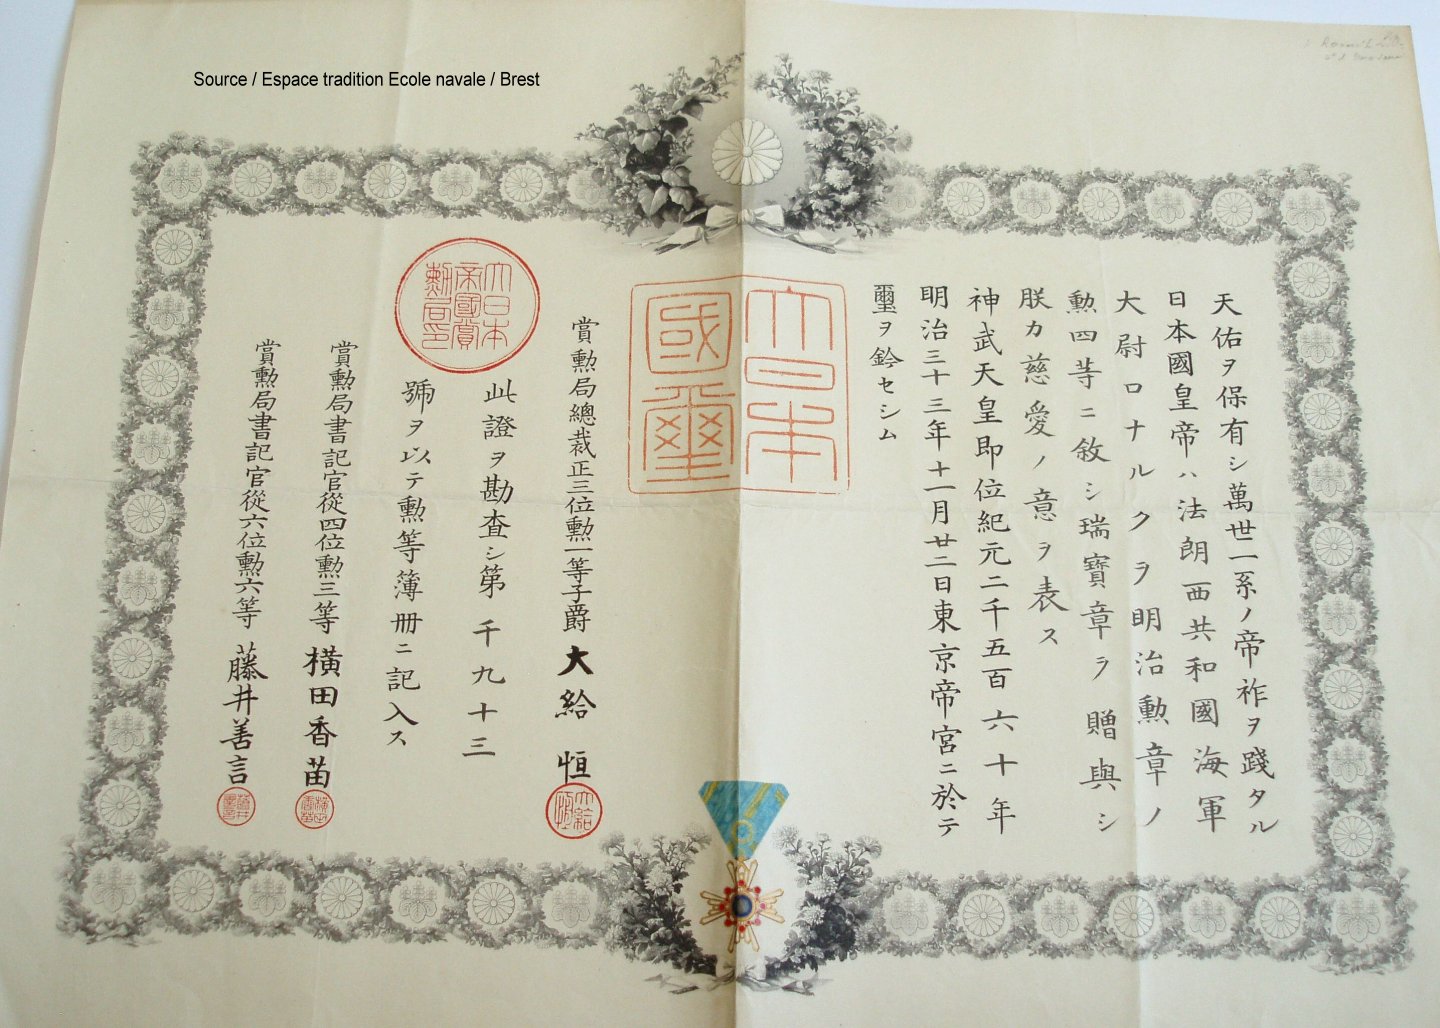 Source / Espace tradition Ecole navale / Brest
天佑ヲ保有シ萬世一系ノ帝祚ヲ踐タル
日本國皇帝ハ法朗西共和國海軍
大尉ロナルクヲ明治勲章ノ
勲四等ニ敘シ瑞寶章ヲ贈與シ
朕カ慈愛ノ意ヲ表ス
神武天皇即位紀元二千五百六十年
明治三十三年十一月廿二日東京帝宮ニ於テ
璽ヲ鈐セシム
大日本
國璽
賞勲局總裁正三位勲一等子爵大給恒
大給恒
大日本
帝國賞
勲局印
此證ヲ勘査シ第千九十三
號ヲ以テ勲等簿冊ニ記入ス
賞勲局書記官從四位勲三等橫田香苗
賞勲局書記官從六位勲六等藤井善言